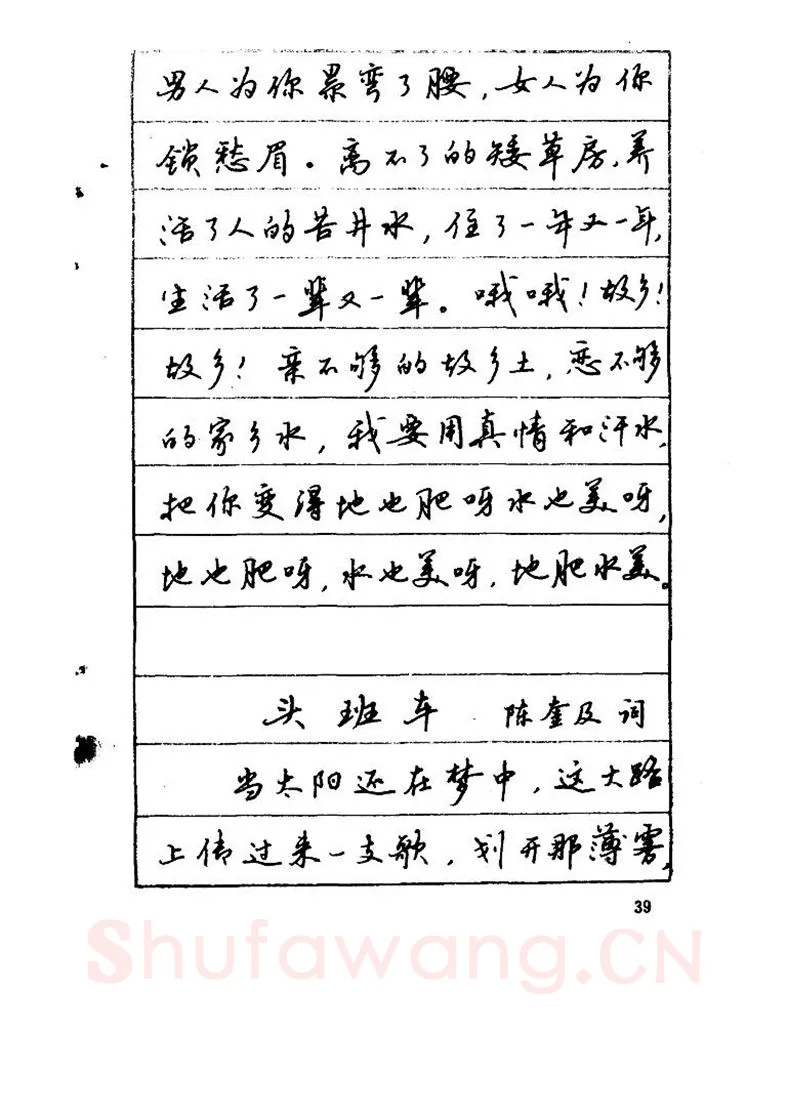 男人为你累弯了腰，女人为你
锁愁眉。离不了的矮草房，养
活了人的苦井水，住了一年又一年，
生活了一辈又一辈。哦哦！故乡！
故乡！亲不够的故乡土，恋不够
的家乡水，我要用真情和汗水，
把你变得地也肥呀水也美呀，
地也肥呀，水也美呀，地肥水美。
头班车 陈奎及词
当太阳还在梦中，这大路
上传过来一支歌，划开那薄雾，
39
Shufawang.CN